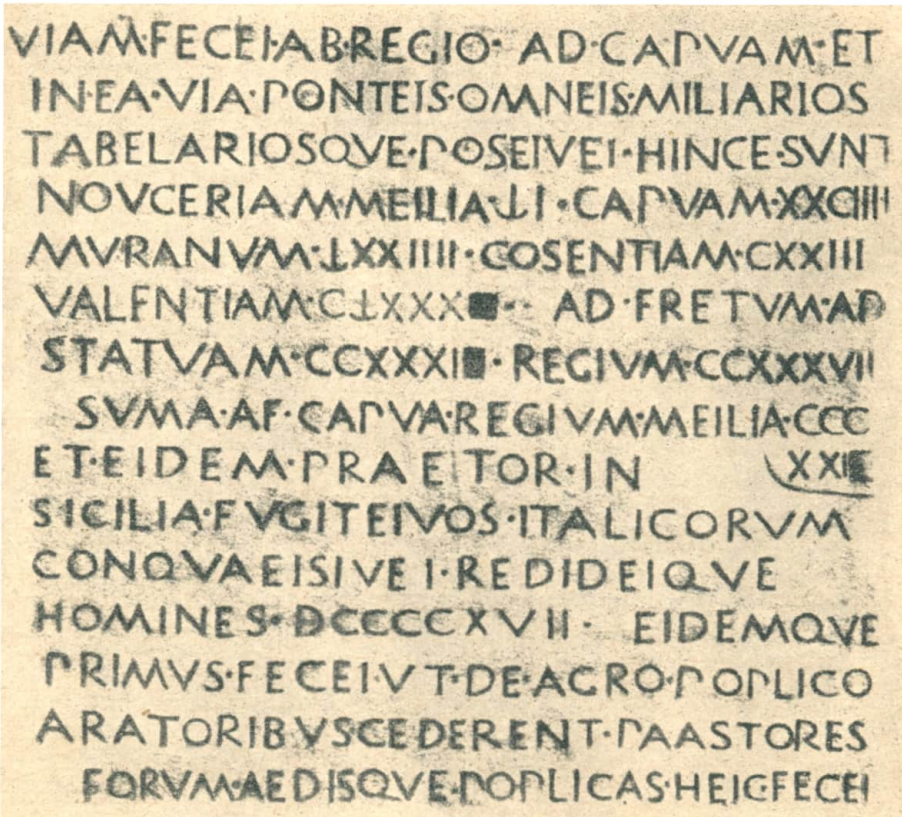 VIAM·FECEI·AB·REGIO· AD·CAPVAM·ET
IN·EA·VIA·PONTEIS·OMNEIS·MILIARIOS
TABELARIOSQVE·POSEIVEI·HINCE·SVNT
NOVCERIAM·MEILIA·ↆI·CAPVAM·XXCIIII
MVRANVM·ↆXXIIII·COSENTIAM·CXXIII
VALENTIAM·CↆXXX · AD·FRETVM·AD
STATVAM·CCXXXI ·REGIVM·CCXXXVII
SVMA·AF·CAPVA·REGIVM·MEILIA·CCC
ET·EIDEM·PRAETOR·IN
SICILIA·FVGITEIVOS·ITALICORVM
CONQVAEISIVEI·REDIDEIQVE
HOMINES·DCCCCXVII· EIDEMQVE
PRIMVS·FECEI·VT·DE·AGRO·POPLICO
ARATORIBVS·CEDERENT·PAASTORES
FORVM·AEDISQVE·POPLICAS·HEIC·FECEI